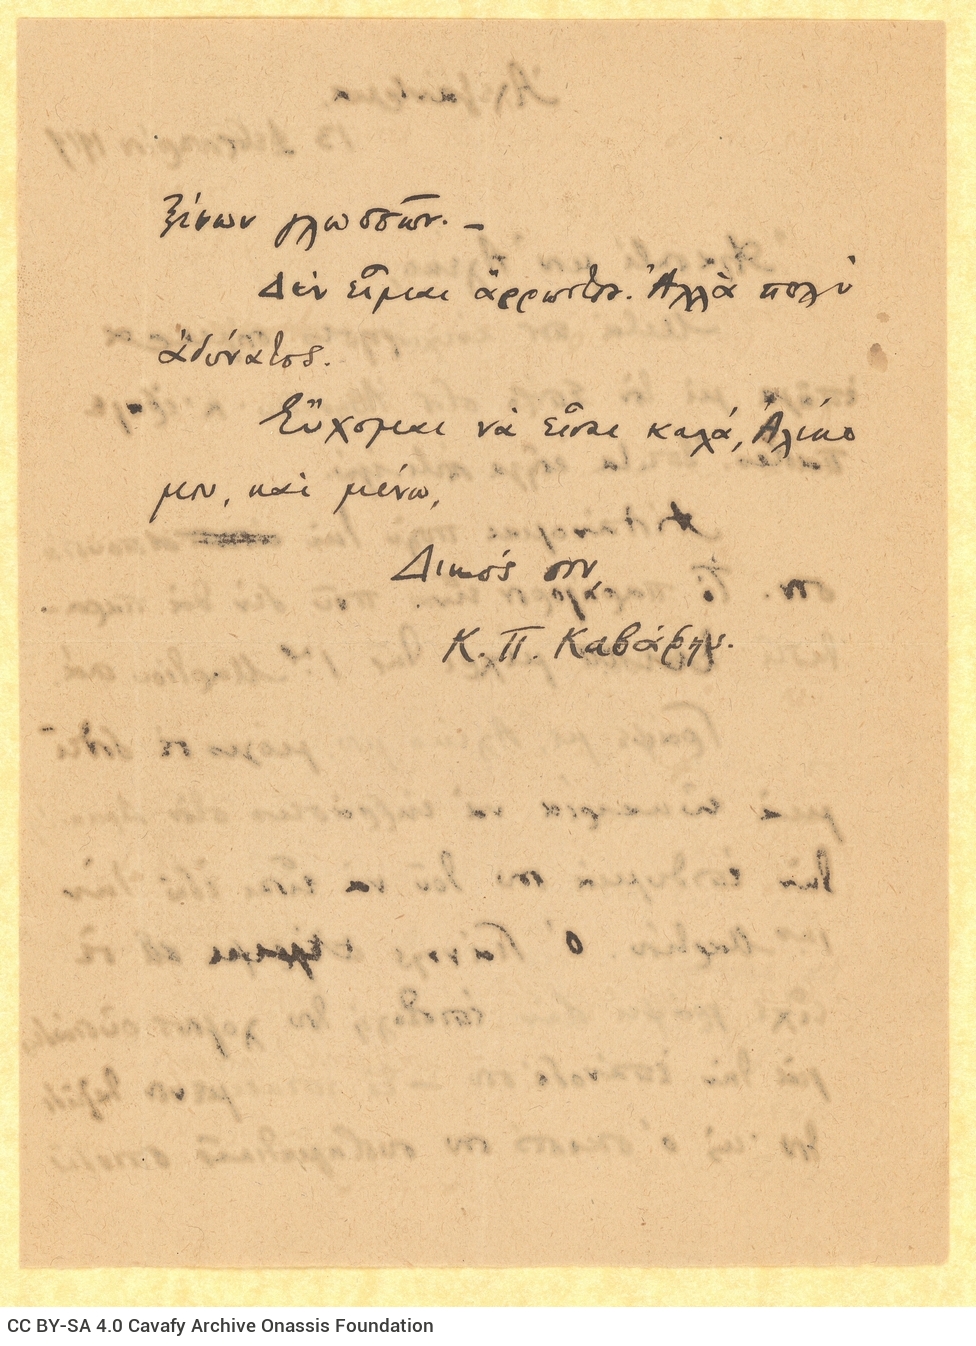 ξένων γλωσσῶν. –
Δὲν εἶμαι ἄρρωστος. Ἀλλὰ πολὺ
ἀδύνατος.
Εὔχομαι νὰ εἶσαι καλά, Ἀλέκο
μου, καὶ μένω,
Δικός σου
Κ. Π. Καβάφης.
CC BY-SA 4.0 Cavafy Archive Onassis Foundation